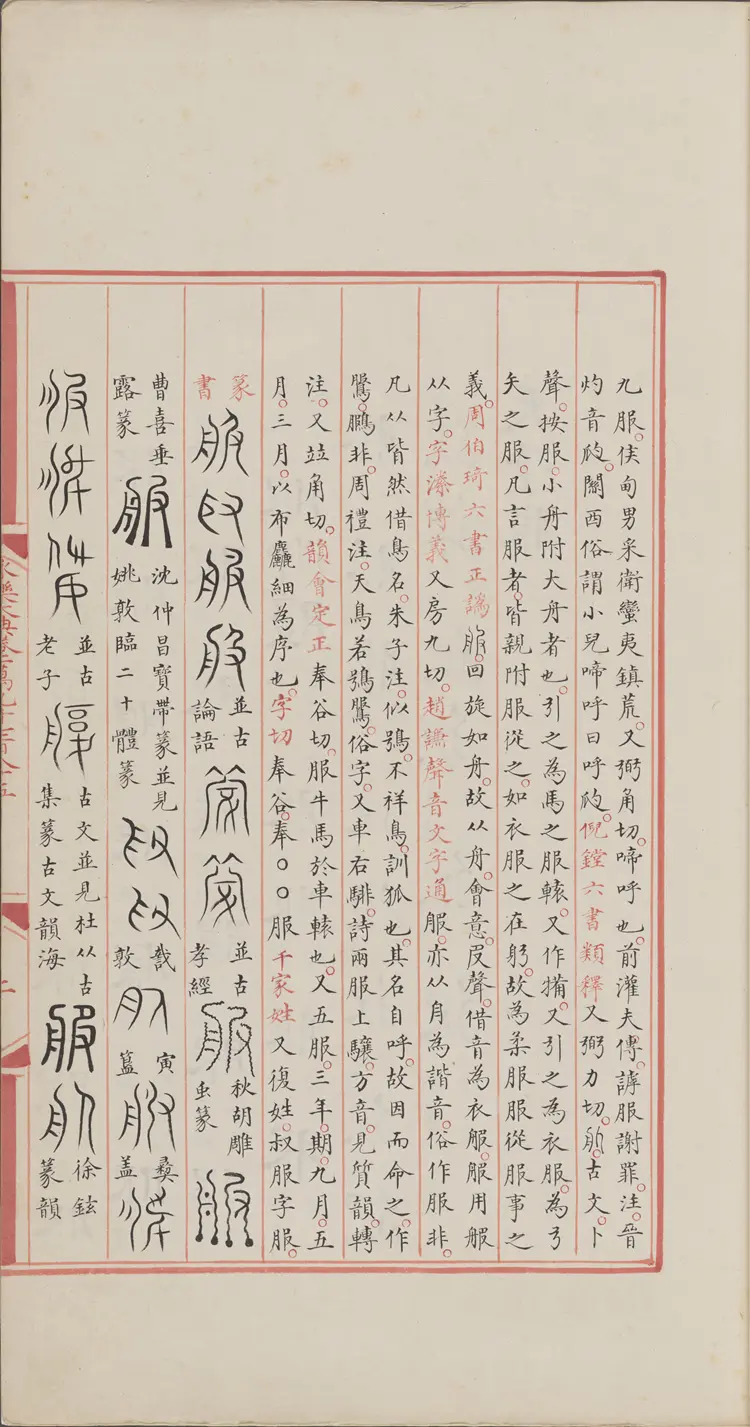 九服侯甸男采衛蠻夷鎮荒又弼角切啼呼也前灌夫傳謼服謝罪注晉
灼音瓝關西俗謂小兒啼呼曰呼瓝倪鏜六書類釋又弼力切古文卜
聲按服小舟附大舟者也引之為馬之服轅又作犕又引之為衣服為弓
矢之服凡言服者皆親附服從之如衣服之在躬故為柔服服從服事之
義周伯琦六書正譌服回旋如舟故从舟會意𠬝聲借音為衣服服用
从字字潫博義又房九切趙謙聲音文字通服亦从為諧音俗作服非
凡从皆然借鳥名朱子注似鴞不祥鳥訓狐也其名自呼故因而命之作
鵩鵬非周禮注天鳥若鴞鵩俗字又車右騑詩兩服上驤方音見質韻轉
注又竝角切韻會定正奉谷切服牛馬於車轅也又五服三年期九月五
月三月以布麤細為序也字切奉谷奉○○服千家姓又復姓叔服字服
篆書
並古論語
並古孝經
秋胡雕虫篆
曹喜垂露篆
沈仲昌寶帶篆並見姚敦臨二十體篆
敦
寅簋
彝盖
並古老子
古文並見杜从古集篆古文韻海
徐鉉篆韻